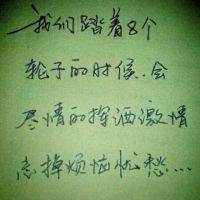 我们踏着8个
轮子的时候.会
尽情的挥洒激情
忘掉烦恼忧愁....